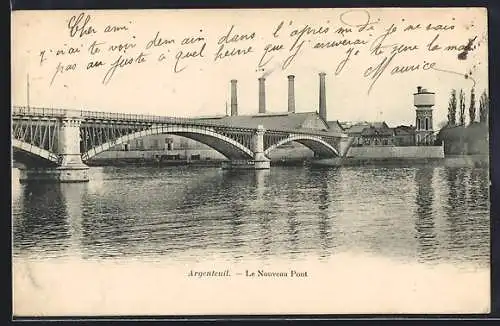 Cher ami
j'irai te voir demain dans l'après midi je ne sais
pas au juste à quel heure j'arriverai Je te serre la main
Maurice
Argenteuil. — Le Nouveau Pont